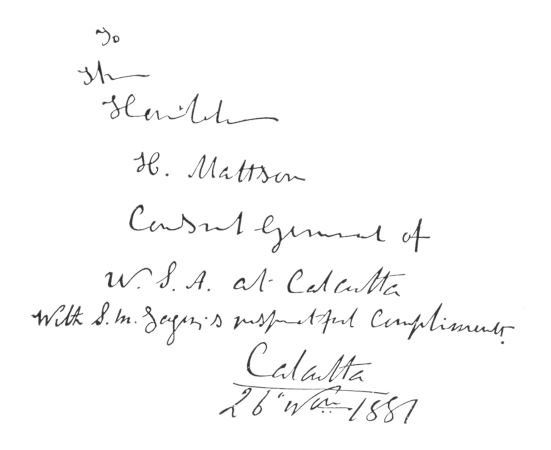 To
The
Honible
H. Mattson
Consul General of
U.S.A. at Calcutta
With S. M. Tagore's respectful Compliments.
Calcutta
26 1881